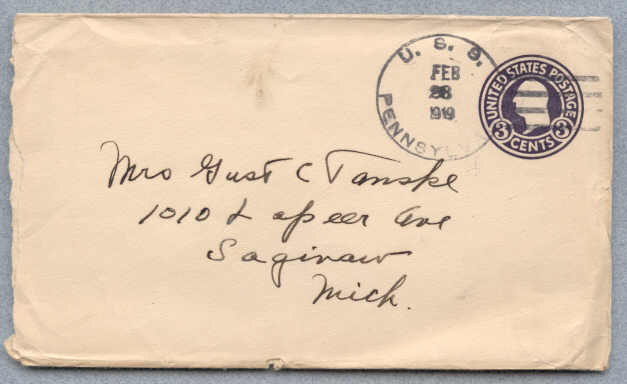 U. S. S.
FEB
28
1919
PENNSYL
UNITED STATES POSTAGE
3 CENTS 3
Mrs Gust C Tanske
1010 Lapeer Ave
Saginaw
Mich.